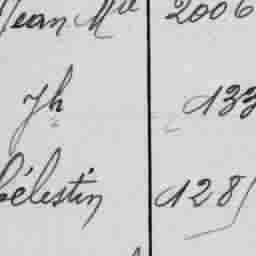 Jean Mie 2006
Jh 133
Célestin 128